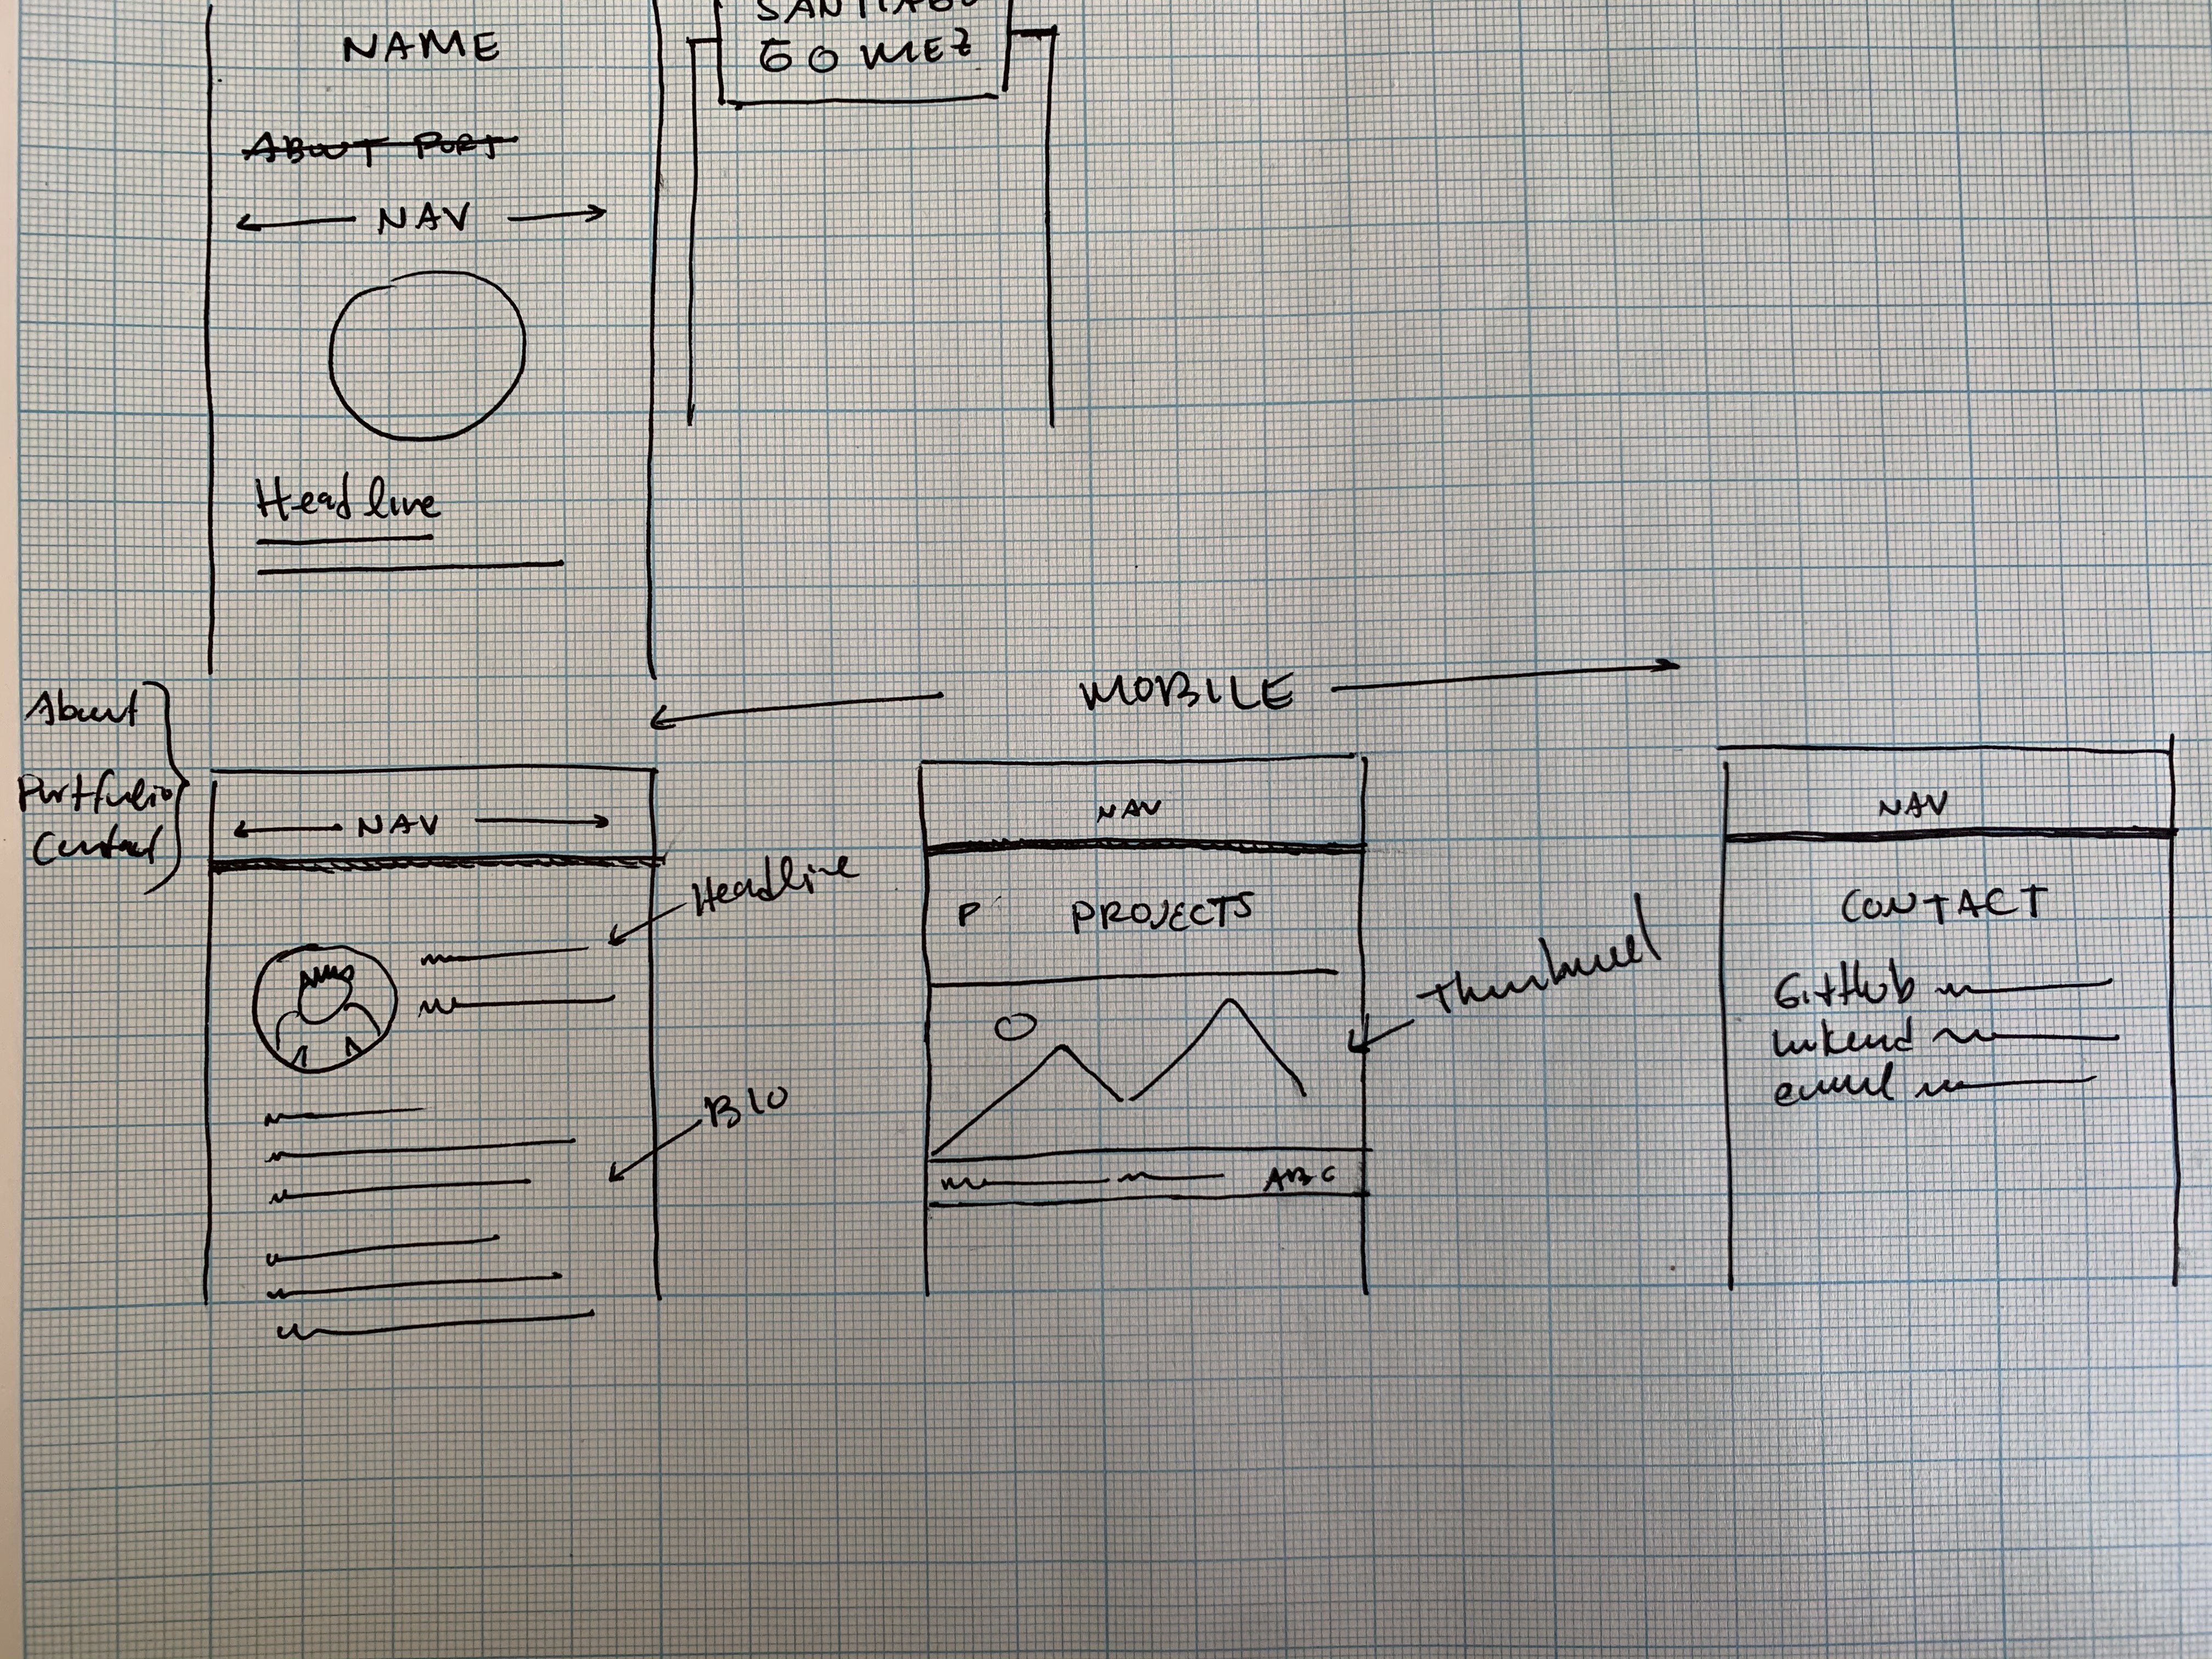 NAME
ABOUT PORT
NAV
Headline
SANTIAGO
GOMEZ
MOBILE
About
Portfolio
Contact
NAV
Headline
BIO
NAV
P
PROJECTS
Thumbnail
ABC
NAV
CONTACT
GitHub
linkend
email